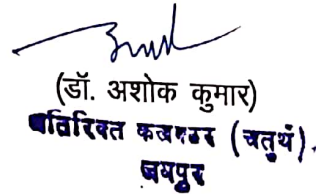 (डॉ. अशोक कुमार)
अतिरिक्त कलक्टर (चतुर्थ)
जयपुर